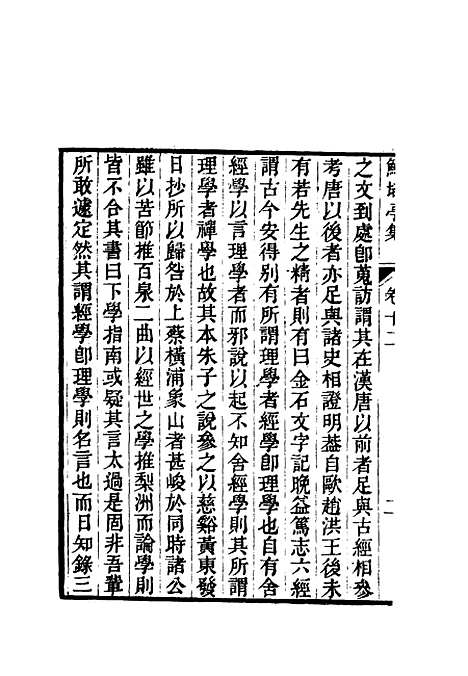 鮚埼亭集 卷十二 二
之文到處卽蒐訪謂其在漢唐以前者足與古經相參
考唐以後者亦足與諸史相證明葢自歐趙洪王後未
有若先生之精者則有曰金石文字記晚益篤志六經
謂古今安得別有所謂理學者經學卽理學也自有舍
經學以言理學者而邪說以起不知舍經學則其所謂
理學者禪學也故其本朱子之說參之以慈谿黃東發
日抄所以歸咎於上蔡橫浦象山者甚峻於同時諸公
雖以苦節推百泉二曲以經世之學推梨洲而論學則
皆不合其書曰下學指南或疑其言太過是固非吾輩
所敢遽定然其謂經學卽理學則名言也而日知錄三